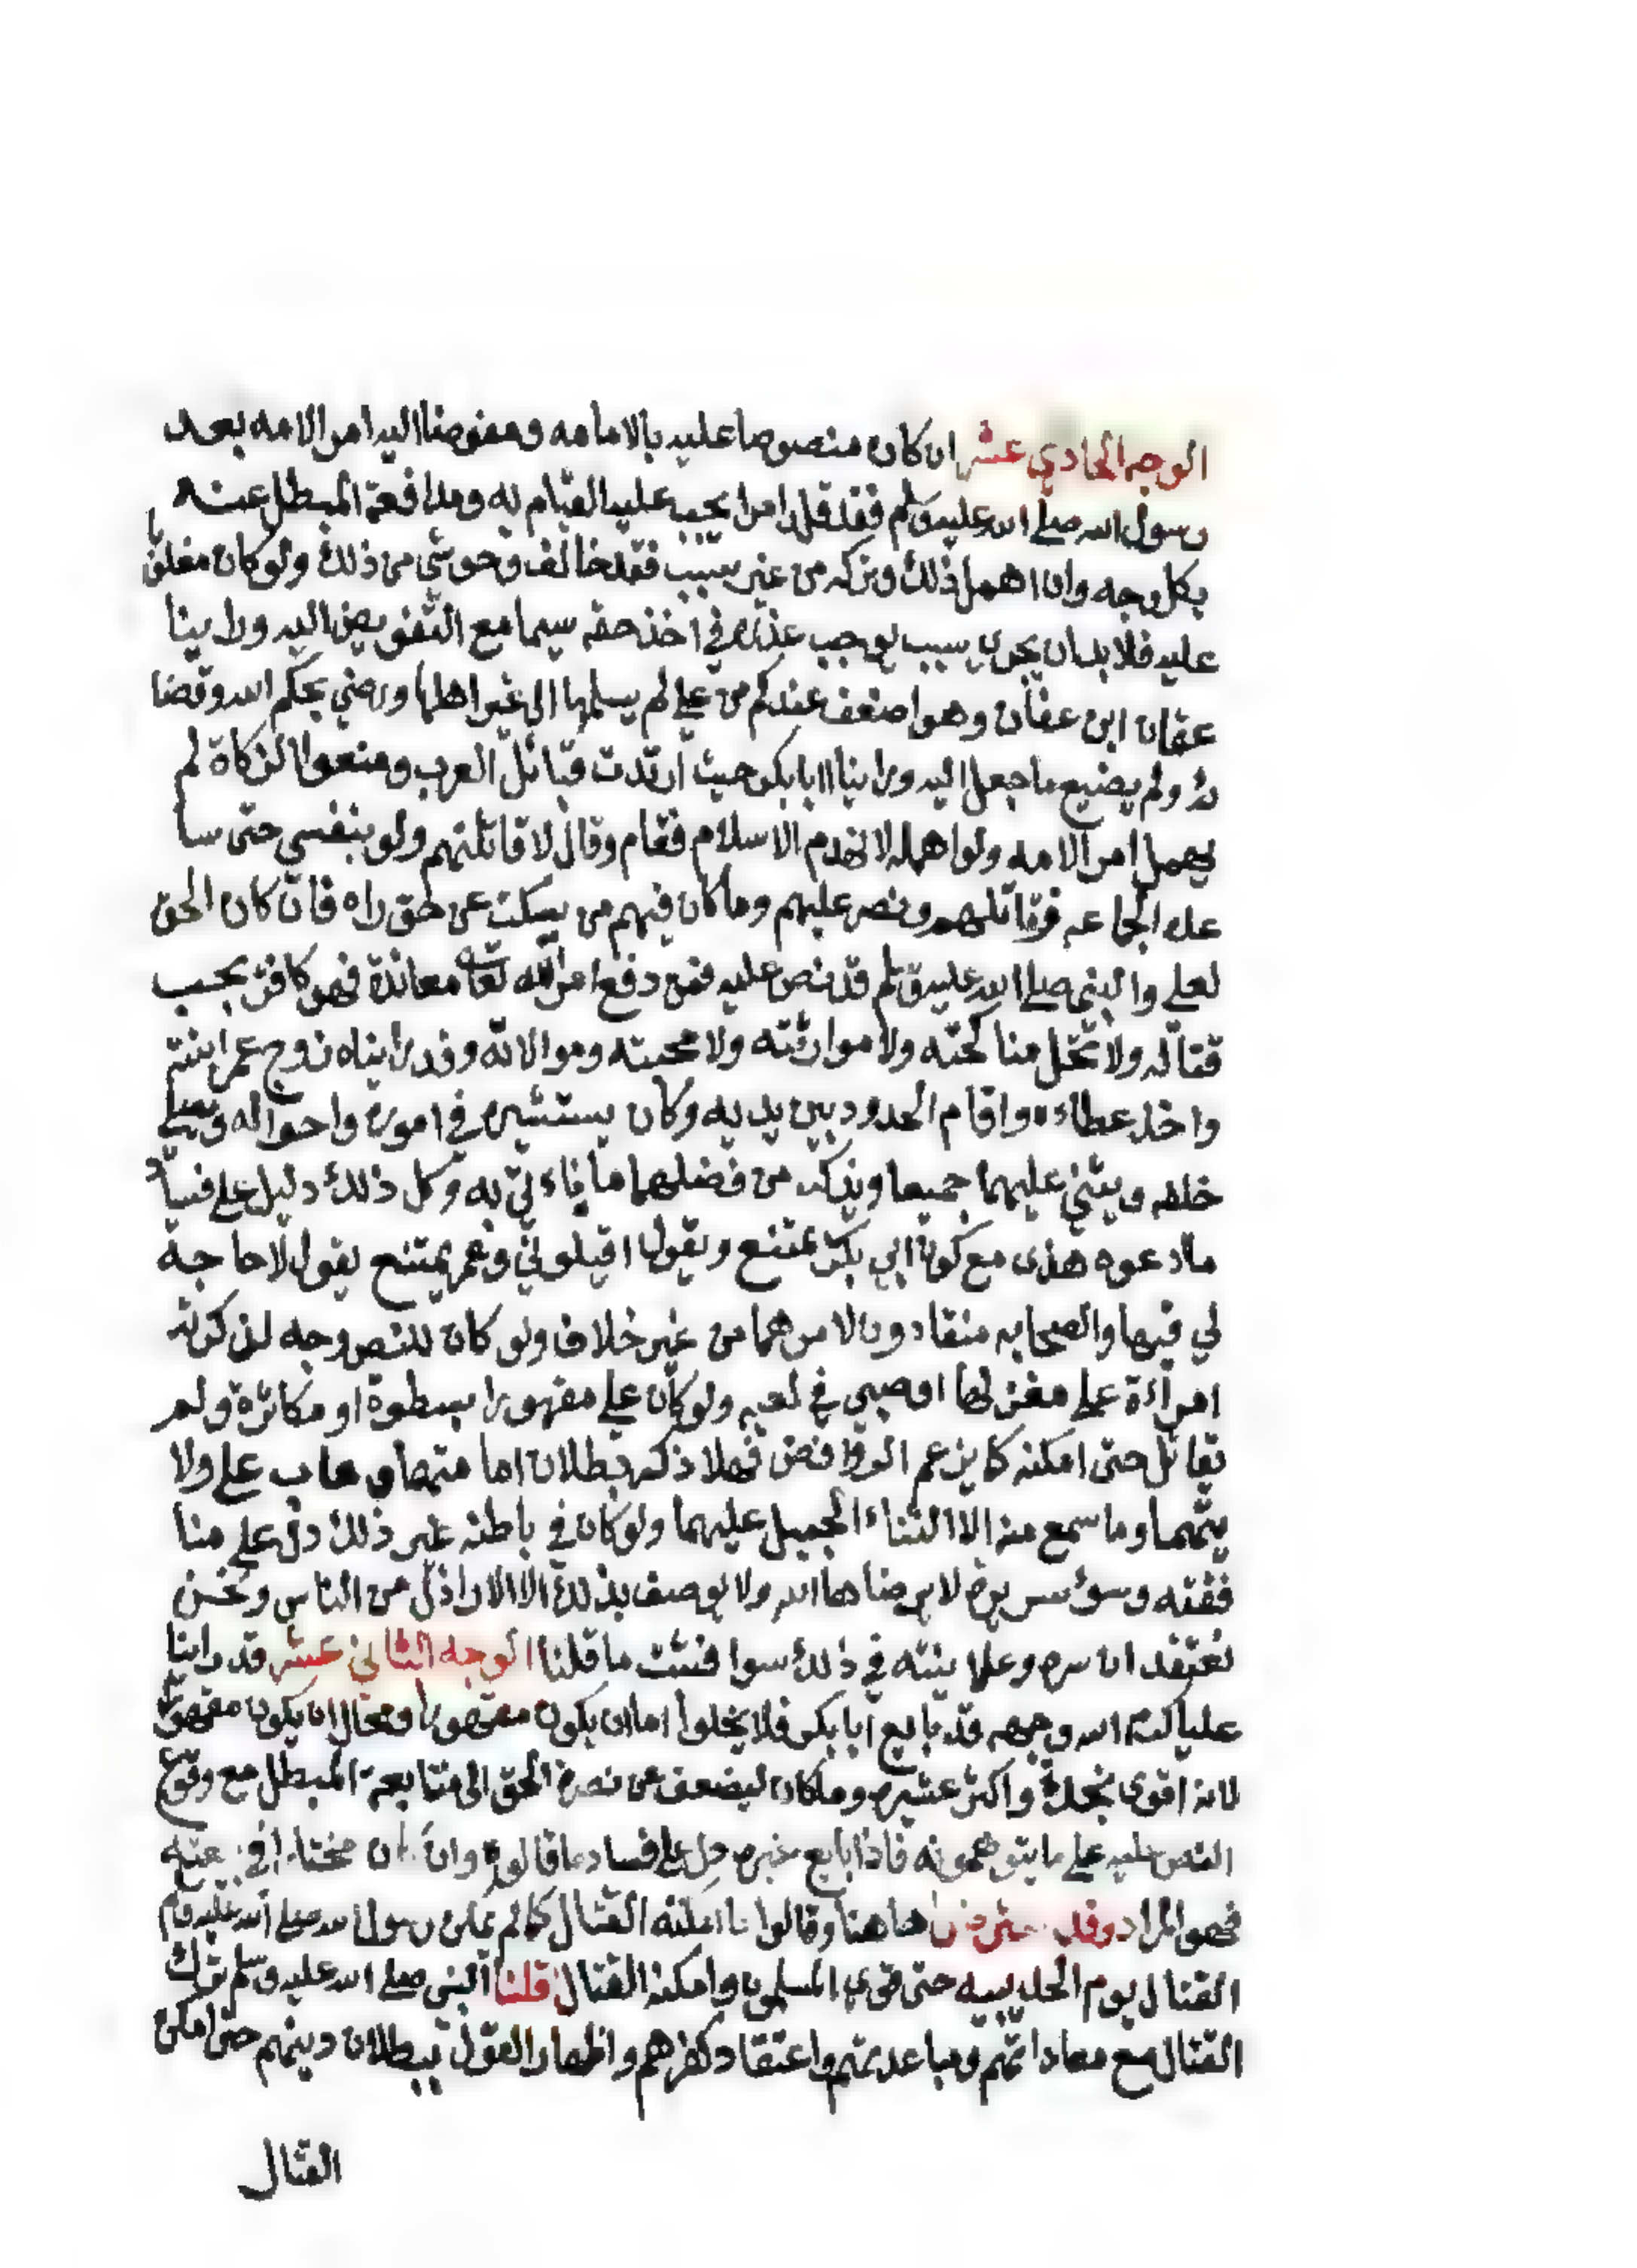 الوجه الحادي عشر ان كان منصوصا عليه بالامامه ومفوضا اليه امر الامه بعد
رسول الله صلى الله عليه وسلم فقد قلد امرا يجب عليه القيام به ومدافعة المبطل عنه
بكل وجه وان اهمل ذلك وتركه من غير سبب فقد خالف وحوشي من ذلك ولو كان مغلوبا
عليه فلا بد ان يجري سبب يوجب عذره في اخذ حقه سيما مع التفويض اليه وراينا
عثمان ابن عفان وهو اضعف عندكم من علي لم يسلمها الى غير اهلها ورضي بحكم الله وقضا
ئه ولم يضيع ما جعل اليه وراينا ابا بكر حيث ارتدت قبائل العرب ومنعوا الزكاة لم
يهمل امر الامه ولو اهمله لانهدم الاسلام فقام وقال لاقاتلنهم ولو بنفسي حتى سا
عده الجماعه فقاتلهم ونصر عليهم وما كان فيهم من يسكت عن حق راه فان كان الحق
لعلي والنبي صلى الله عليه وسلم قد نص عليه فمن دفع امر الله تعالى معاندة فهو كافر يجب
قتاله ولا تحل مناكحته ولا موارثته ولا محبته وموالاته وقد رايناه زوج عمر ابنته
واخذ عطاءه واقام الحدود بين يديه وكان يستشيره في اموره واحواله ويصلي
خلفه ويثني عليهما جميعا ويذكر من فضلهما ما ياءتي به وكل ذلك دليل على فساد
ما ادعوه هذى مع كون ابي بكر يمتنع ويقول اقيلوني وعمر يمتنع يقول لا حاجة
لي فيها والصحابه منقادون لامرهما من غير خلاف ولو كان للنص وجه لذكرته
امراءة على مغزلها او صبي في لعبه ولو كان علي مقهورا بسطوة او مكاثرة ولم
يقاتل حتى امكنه كما يزعم الروافض فهلا ذكر بطلان امامتهما وعاب علي ولا
يتهما وما سمع منه الا الثناء الجميل عليهما ولو كان في باطنه غير ذلك دل على منا
فقته وسوء سريرة لا يرضاها الله ولا يوصف بذلك الا الاراذل من الناس ونحن
نعتقد ان سره وعلانيته في ذلك سوا فثبت ما قلنا الوجه الثاني عشر قد راينا
عليا كرم الله وجهه قد بايع ابا بكر فلا يخلوا اما ان يكون مقهورا ومحال ان يكون مقهورا
لانه اقوى نجدة واكثر عشيره وما كان ليضعف عن نصرة الحق الى متابعة المبطل مع وقوع
النص عليه على ما يتوهمونه فاذا بايع غيره دل على فساد ما قالوه وان كان مختارا في بيعته
فهو المراد وقد هاهنا وقالوا ما امكنه القتال كما لم يمكن رسول الله صلى الله عليه وسلم
القتال يوم الحديبيه حتى قوي المسلمون وامكنه القتال قلنا النبي صلى الله عليه وسلم ترك
القتال مع معاداتهم ومباعدتهم واعتقاد كفرهم واظهار القول ببطلان دينهم حتى امكن
القتال